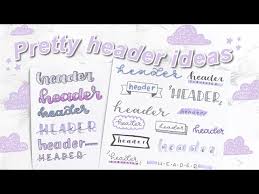 Pretty header ideas
header
header
header
HEADER
header
HEADER
header header
header HEADER
header header
header header
header header
header HEADER